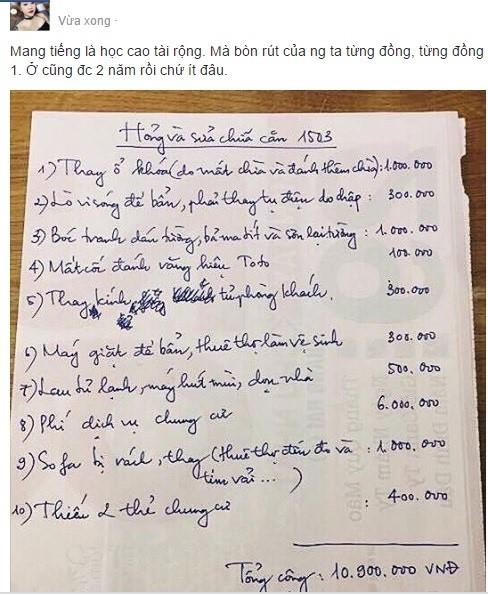 Vừa xong
Mang tiếng là học cao tài rộng. Mà bòn rút của ng ta từng đồng, từng đồng
1. Ở cũng đc 2 năm rồi chứ ít đâu.
Hỏng và sửa chữa căn 1503
1) Thay ổ khóa (do mất chìa và đánh thêm chìa): 1.000.000
2) Lò vi sóng để bẩn, phải thay tụ điện do chập : 300.000
3) Bóc tranh dán tường, bả ma tít và sơn lại tường : 1.000.000
4) Mất cốc đánh răng hiệu Toto 100.000
5) Thay kính tủ phòng khách. 300.000
6) Máy giặt để bẩn, thuê thợ làm vệ sinh 300.000
7) Lau tủ lạnh, máy hút mùi, dọn nhà 500.000
8) Phí dịch vụ chung cư 6.000.000
9) Sofa bị rách, thay (thuê thợ đến đo và : 1.000.000
tìm vải ... )
10) Thiếu 2 thẻ chung cư : 400.000
Tổng cộng : 10.900.000 VNĐ